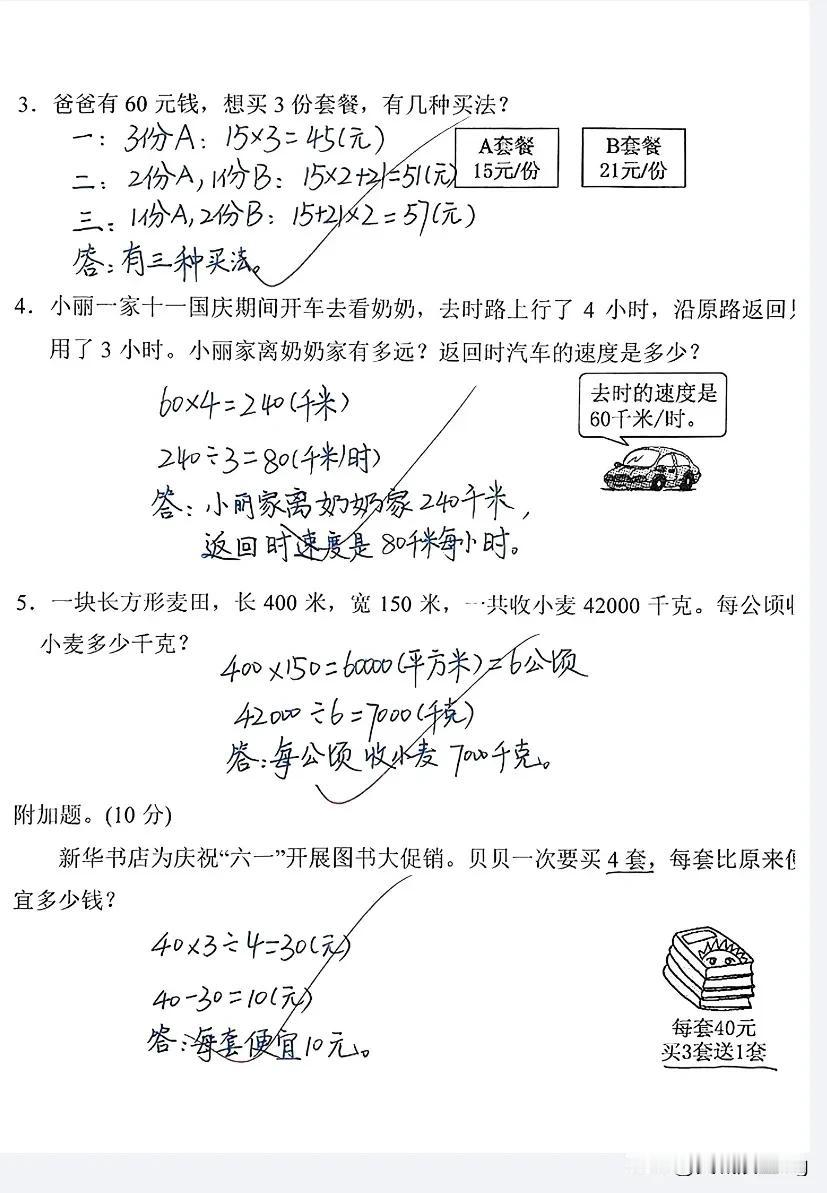 3．爸爸有 60 元钱，想买 3 份套餐，有几种买法？
一：3份A：15×3=45(元)
A套餐
15元/份
B套餐
21元/份
二：2份A,1份B：15×2+21=51(元)
三：1份A,2份B：15+21×2=57(元)
答：有三种买法。
4．小丽一家十一国庆期间开车去看奶奶，去时路上行了 4 小时，沿原路返回
用了 3 小时。小丽家离奶奶家有多远？返回时汽车的速度是多少？
去时的速度是
60千米/时。
60×4=240(千米)
240÷3=80(千米/时)
答：小丽家离奶奶家240千米，
返回时速度是80千米每小时。
5．一块长方形麦田，长 400 米，宽 150 米，一共收小麦 42000 千克。每公顷
小麦多少千克？
400×150=60000(平方米)=6公顷
42000÷6=7000(千克)
答：每公顷收小麦7000千克。
附加题。(10 分)
新华书店为庆祝“六一”开展图书大促销。贝贝一次要买 4 套，每套比原来
宜多少钱？
40×3÷4=30(元)
40-30=10(元)
答：每套便宜10元。
每套40元
买3套送1套